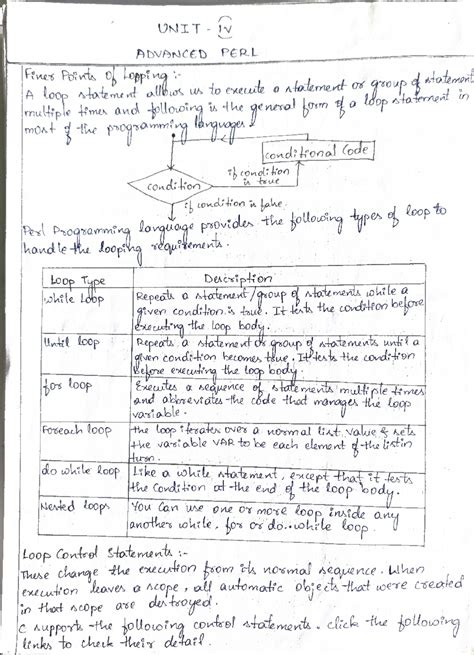 UNIT - IV
ADVANCED PERL
Finer Points Of Looping :-
A loop statement allows us to execute a statement or group of statement
multiple times and following is the general form of a loop statement in
most of the programming languages.
conditional Code
if condition
is true
condition
if condition is false.
Perl Programming language provides the following types of loop to
handle the looping requirements.
Loop Type Description
while Loop Repeats a statement/group of statements while a
given condition is true. It tests the condition before
executing the loop body.
Until loop Repeats a statement or group of statements until a
given condition becomes true. It tests the condition
before executing the loop body.
for loop Executes a sequence of statements multiple times
and abbreviates the code that manages the loop
variable.
Foreach loop the loop iterates over a normal list value & sets
the variable VAR to be each element of the list in
turn.
do while loop Like a while statement, except that it tests
the Condition at the end of the loop body.
Nested loops You can use one or more loop inside any
another while, for or do..while loop.
Loop Control Statements :-
These change the execution from its normal sequence. When
execution leaves a scope, all automatic objects that were created
in that scope are destroyed.
C supports the following control statements. click the following
links to check their detail.